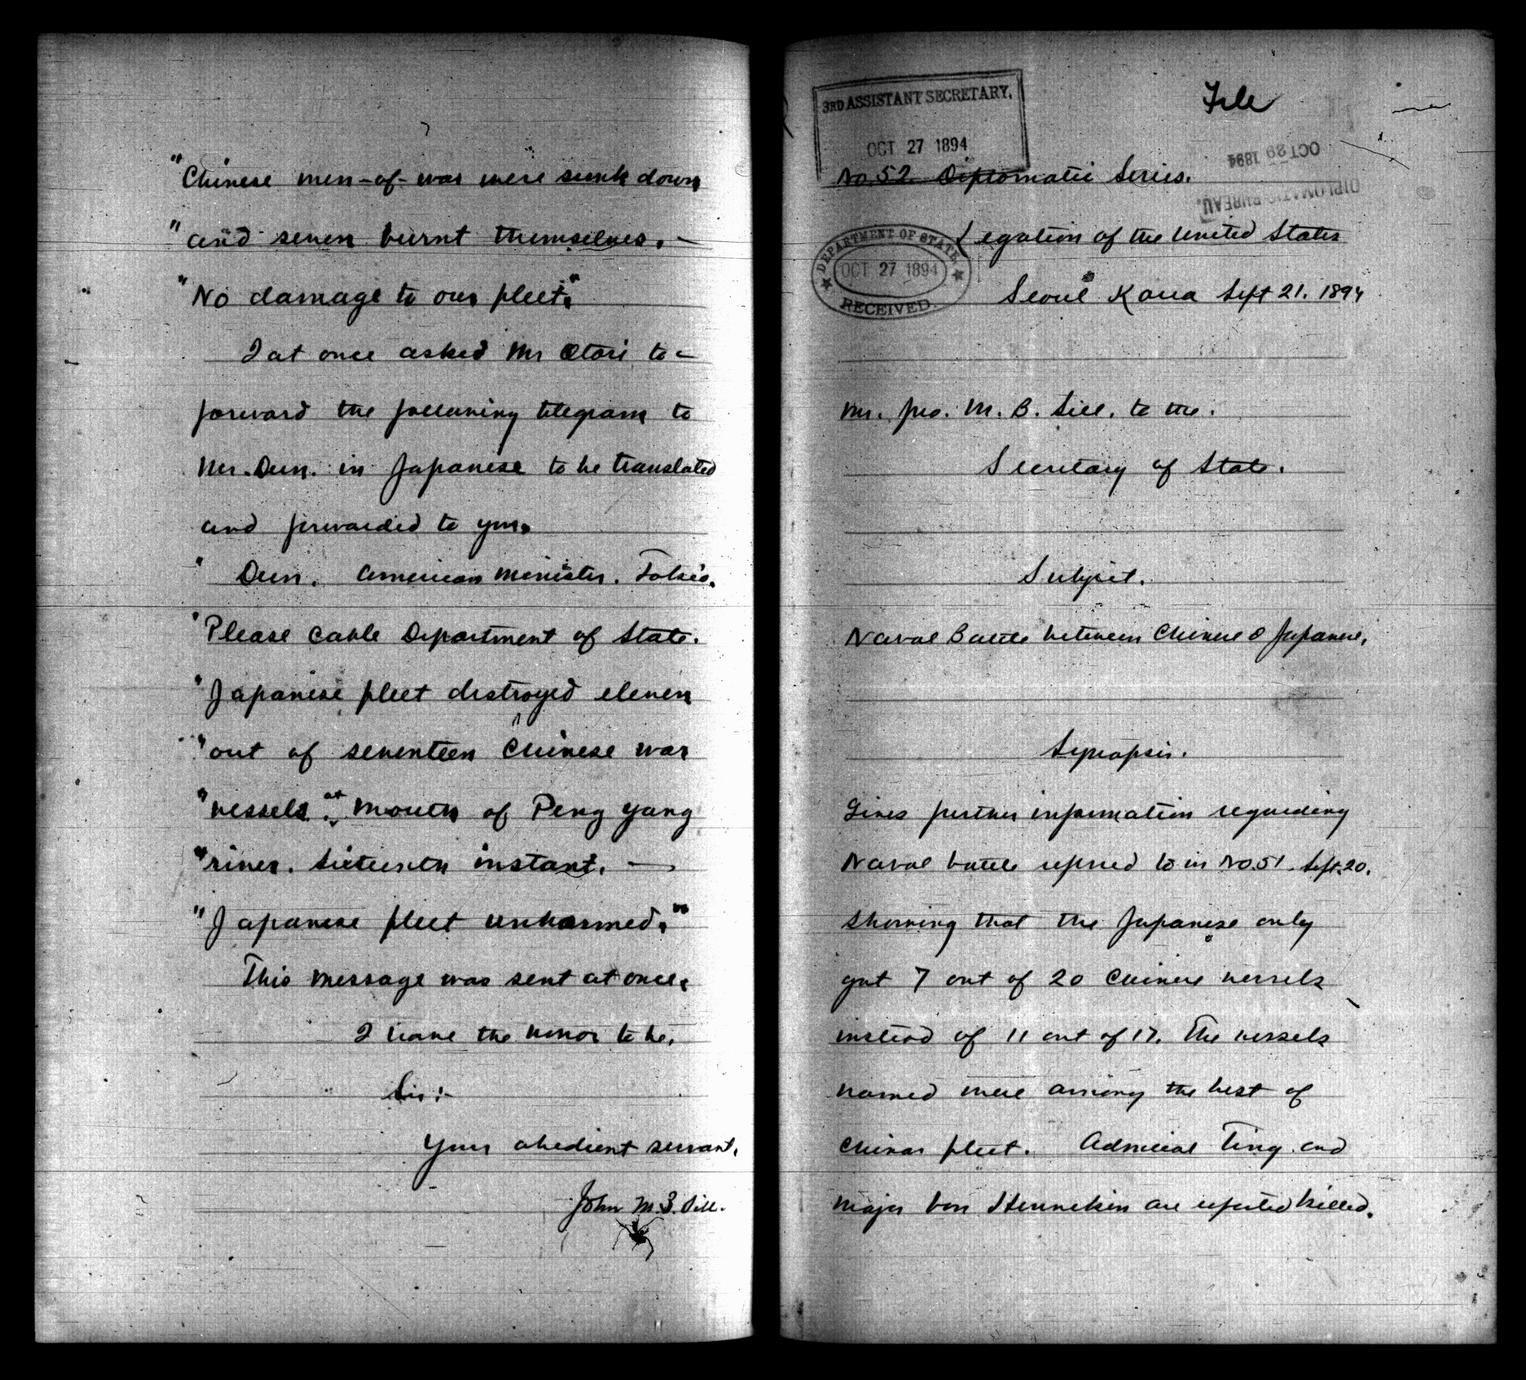 "Chinese men-of-war were sunk down
"and seven burnt themselves. —
"No damage to our fleet."
I at once asked Mr Otori to -
forward the following telegram to
Mr. Dun. in Japanese to be translated
and forwarded to you.
" Dun. American Minister. Tokio.
"Please cable Department of State.
"Japanese fleet destroyed eleven
"out of seventeen Chinese war
"vessels at mouth of Peng Yang
"river. Sixteenth instant. —
"Japanese fleet unharmed."
This message was sent at once.
I have the honor to be.
Sir:-
Your obedient servant.
John M. B. Sill.
3RD ASSISTANT SECRETARY.
OCT 27 1894
File
OCT 29 1894
DIPLOMATIC BUREAU.
No. 52 Diplomatic Series.
DEPARTMENT OF STATE
OCT 27 1894
RECEIVED.
Legation of the United States
Seoul Korea Sept 21. 1894
Mr. Jno. M. B. Sill. to the.
Secretary of State.
Subject.
Naval Battle between Chinese & Japanese.
Synopsis.
Gives further information regarding
Naval battle referred to in No. 51 Sept. 20.
Showing that the Japanese only
got 7 out of 20 Chinese vessels
instead of 11 out of 17. The vessels
named were among the best of
Chinas fleet. Admiral Ting and
Major von Henneken are reported killed.